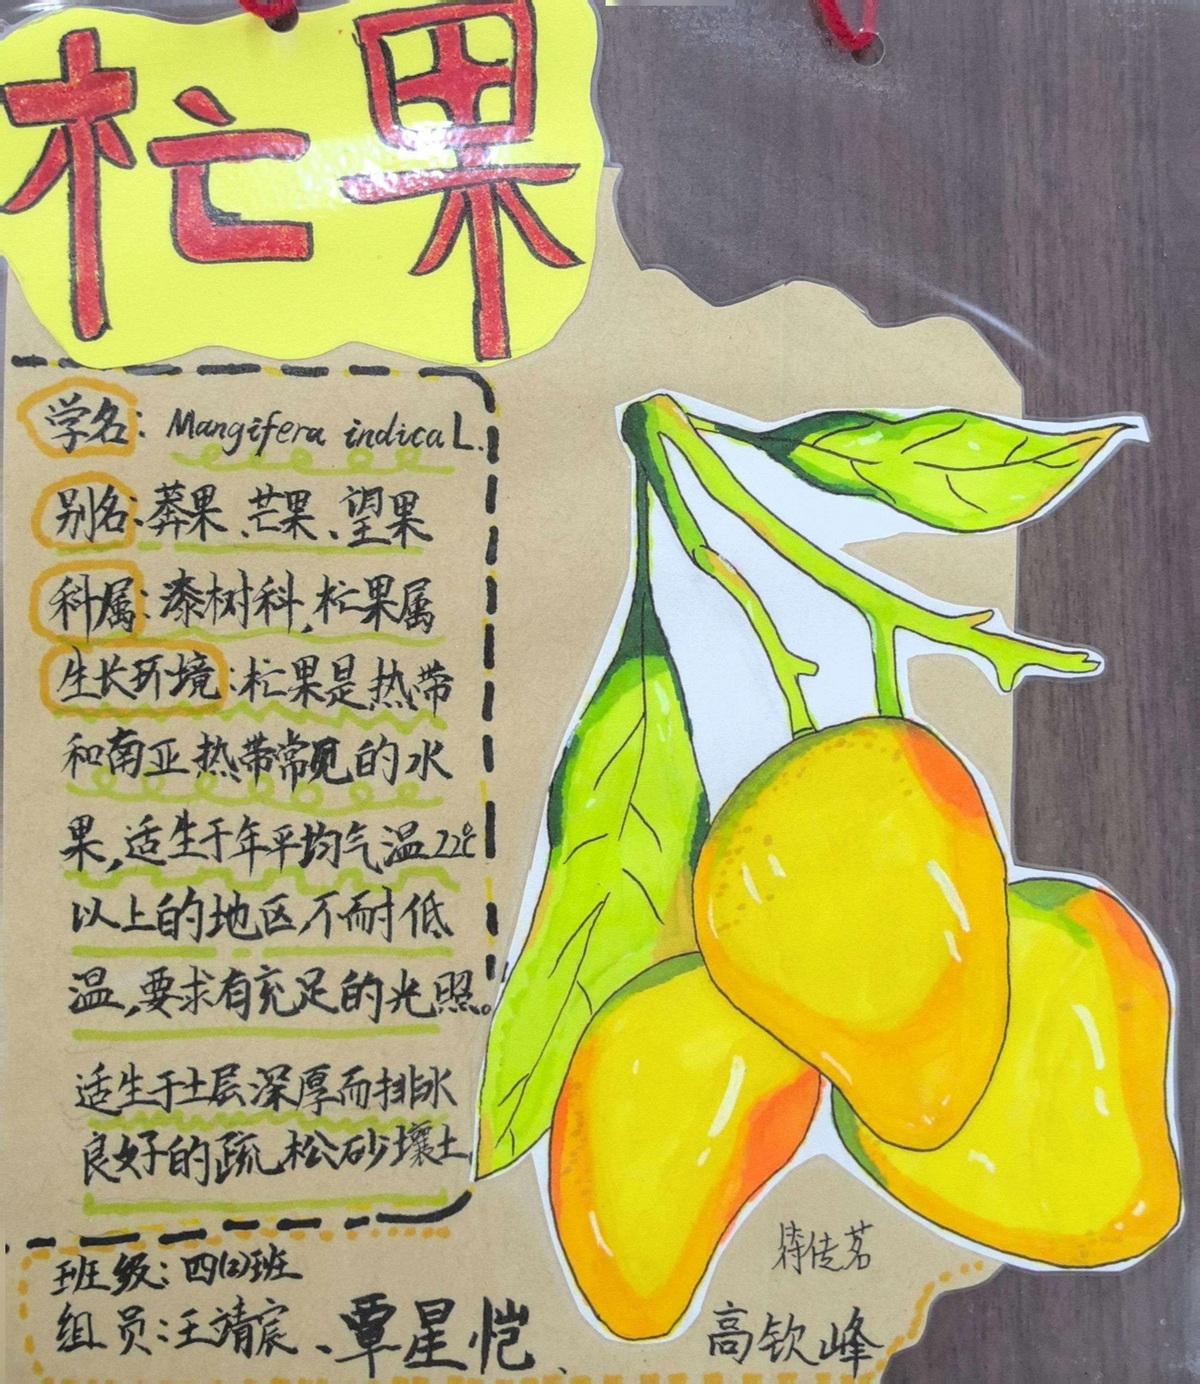 杧果
学名：Mangifera indica L.
别名：莽果、芒果、望果
科属：漆树科，杧果属
生长环境：杧果是热带
和南亚热带常见的水
果，适生于年平均气温22℃
以上的地区，不耐低
温，要求有充足的光照。
适生于土层深厚而排水
良好的疏松砂壤土
班级：四(2)班
组员：王靖宸、覃星恺、
传茗
高钦峰